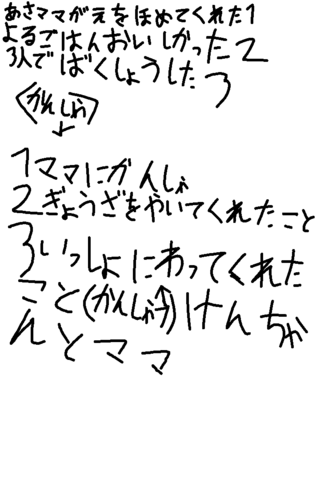 あさママがえをほめてくれた1
よるごはんおいしかった2
3人でばくしょうした3
〈かんしゃ〉
↓
1ママにかんしゃ
2ぎょうざをやいてくれたこと
3いっしょにわってくれた
こと(かんしゃ↑)けんちゃ
んとママ